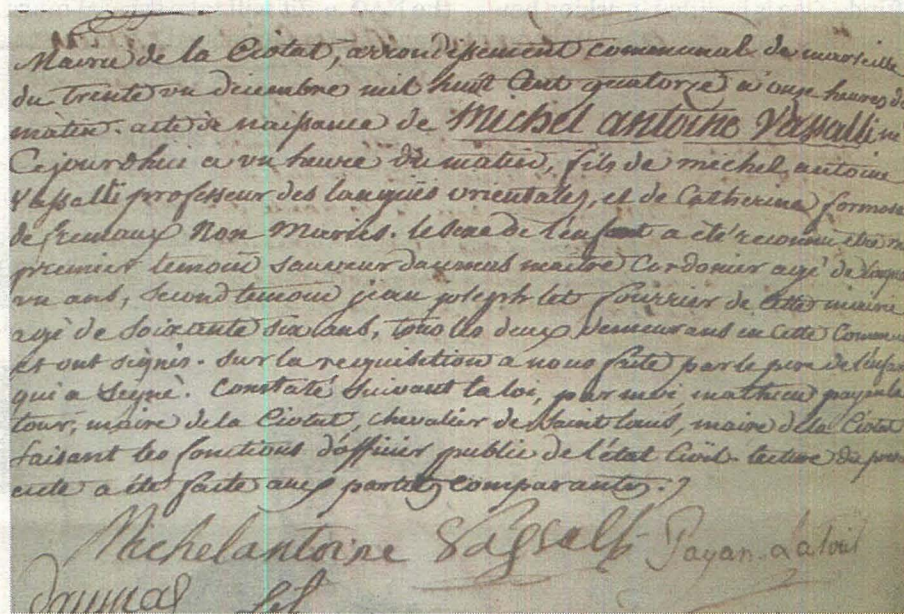 Mairie de la Ciotat, arrondissement communal de marseille
du trente un decembre mil huit Cent quatorze a onze heures du
matin. acte de naissance de Michel antoine Vassalli né
Cejourdhui a un heure du matin, fils de michel antoine
Vassalli professeur des langues orientales, et de Catherine formosa
de Non Mariés. le sexe de l'enfant a été reconnu etre
premier temoin sauveur maitre Cordonier agé de
un ans, second temoin jean joseph let fourrier de cette mairie
agé de soixante six ans, tous les deux demeurans en cette Commu
et ont signés. sur la requisition a nous faite par le pere de l'enfan
qui a signé. Constaté suivant la loi, par moi mathieu payan la
tour, maire de la Ciotat, chevalier de saint louis, maire de la Ciotat
faisant les fonctions d'officier public de l'état Civil. lecture du
acte a été faite aux parties comparantes.
Michelantoine Vassalli Payan. Latour
let